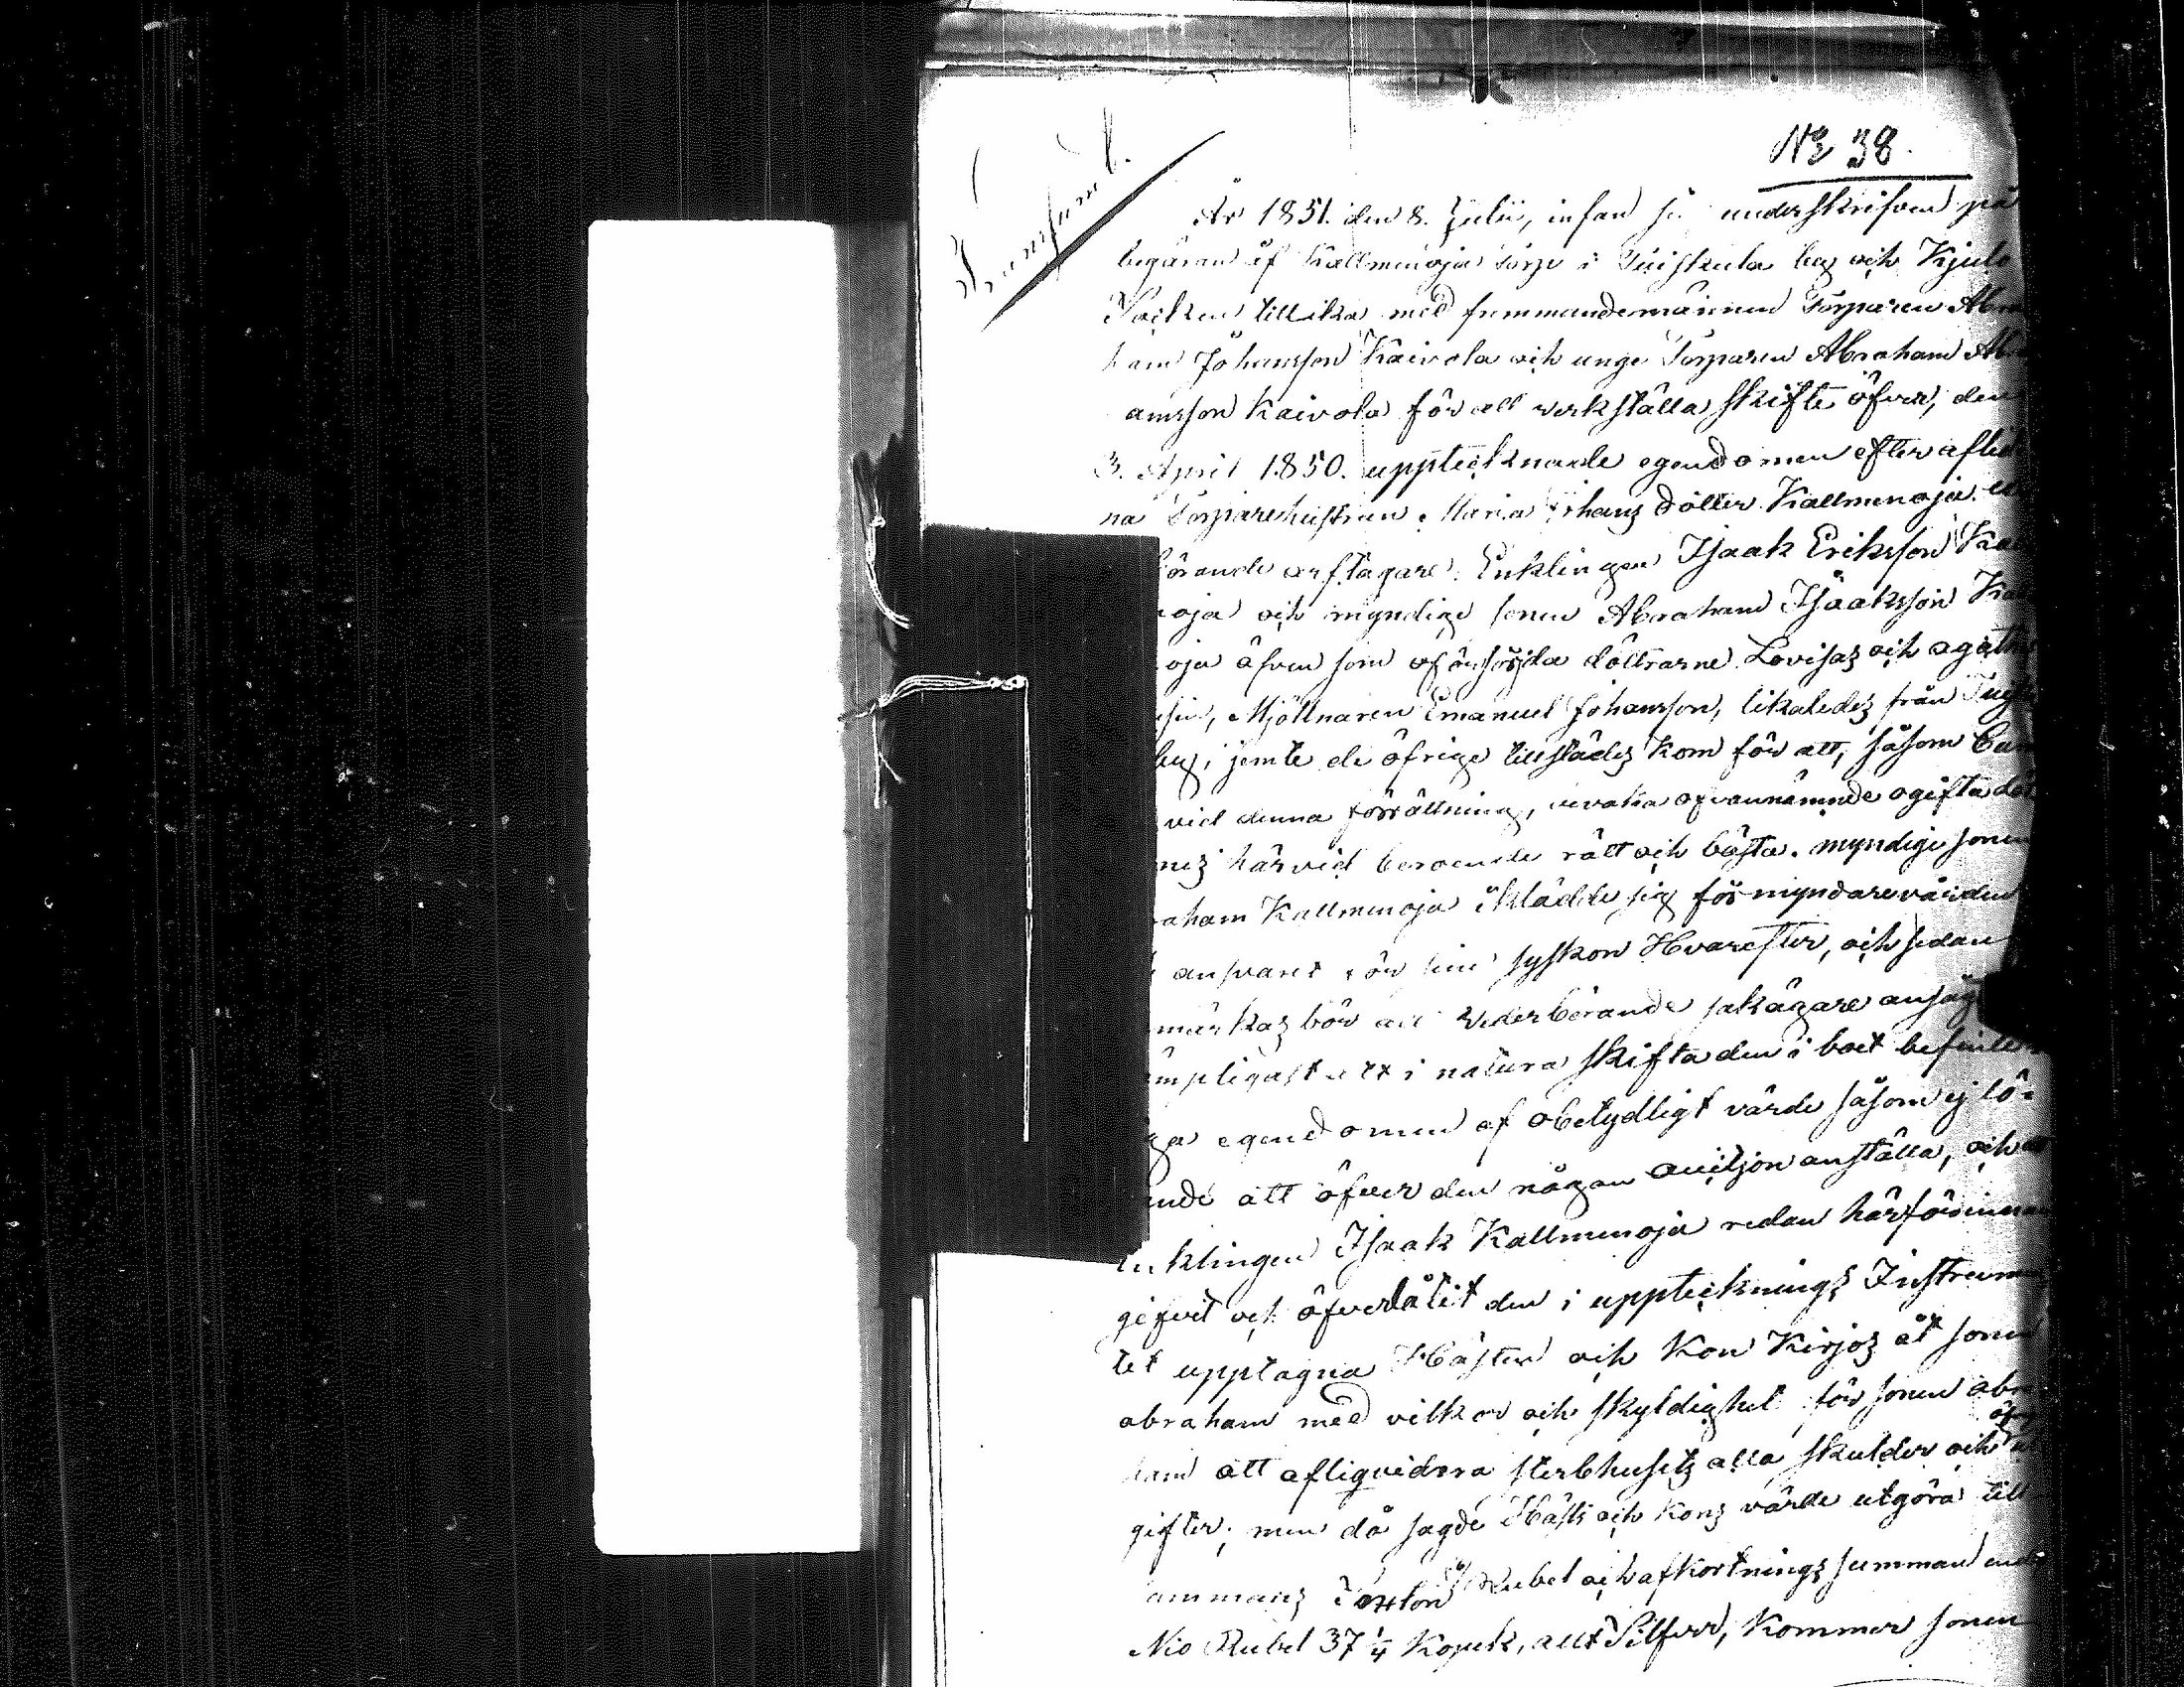 No 38.
År 1851. den 8. Julii, infan sig underskrifven på
begäran af Kallmenoja torp i Tuiskula by och Kjulo
Socken tillika med fremmandemännen Torparen Abra
ham Johansson Kaivola och unge Torparen Abraham Abra
amsson Kaivola för att verkställa skifte öfver, den
3. April 1850. upptecknade egendomen efter aflid
na Torparehustrun Maria Johans dotter Kallmenoja.
örande arftagare. Enklingen Isaak Eriksson Ka
oja och myndige sonen Abraham Isaaksson Ka
oja äfven som oförsörjda döttrarne Lovisas och agatha
Mjöllnaren Emanuel Johansson, likaledes från
by, jemte de öfrige tillstädes kom för att, såsom
vid denna förrättning, bevaka ofvannämnde ogifta dö
nes härvid beroende rätt och bästa. myndige sonen
raham Kallmenoja iklädde sig förmyndarevården
ansvaret för sine syskon Hvarefter, och sedan
märkas bör att vederbörande sakägare ansåg
ämpligast att i natura skifta den i boet befintl
ga egendomen af obetydligt värde såsom ej lö-
ande att öfver den någon auctjon anställa, och
Enklingen Isaak Kallmenoja redan härförinnan
gifvit och öfverlåtit den i uppteckningsInstrumen
tet upptagna Hästen och Kon Kirjos åt sonen
abraham med vilkor och skyldighet för sonen abra
ham att afliqvidera sterbhusets alla skulder och
gifter; men då sagde Häst och Kons värde utgöra till
ammans Sexton Rubel och afkortnings summan
Nio Rubel 37 1/4 Kopek, allt Silfver, Kommer sonen